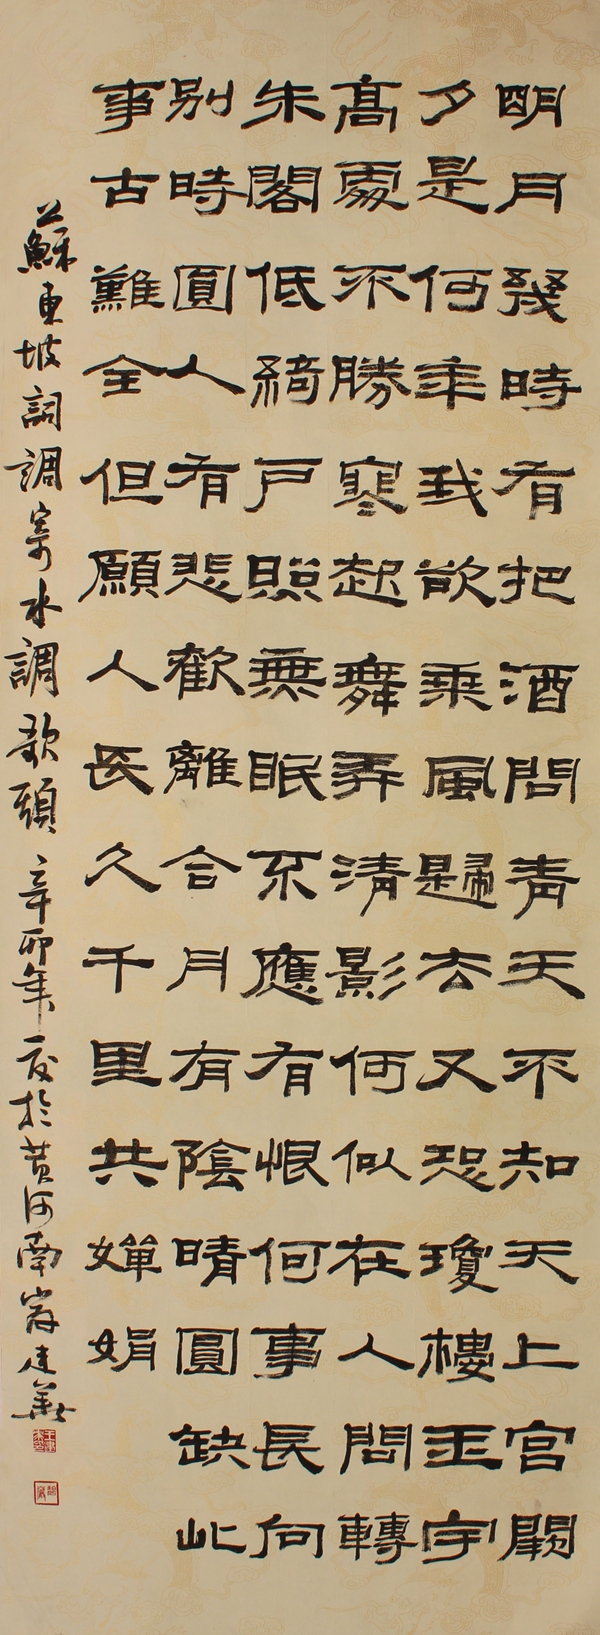 明月幾時有把酒問青天不知天上宮闕
夕是何年我欲乘風歸去又恐瓊樓玉宇
高處不勝寒起舞弄清影何似在人間轉
朱閣低綺戶照無眠不應有恨何事長向
别時圓人有悲歡離合月有陰晴圓缺此
事古難全但願人長久千里共嬋娟
蘇東坡詞調寄水調歌頭辛卯年夏於黃河南岸建華